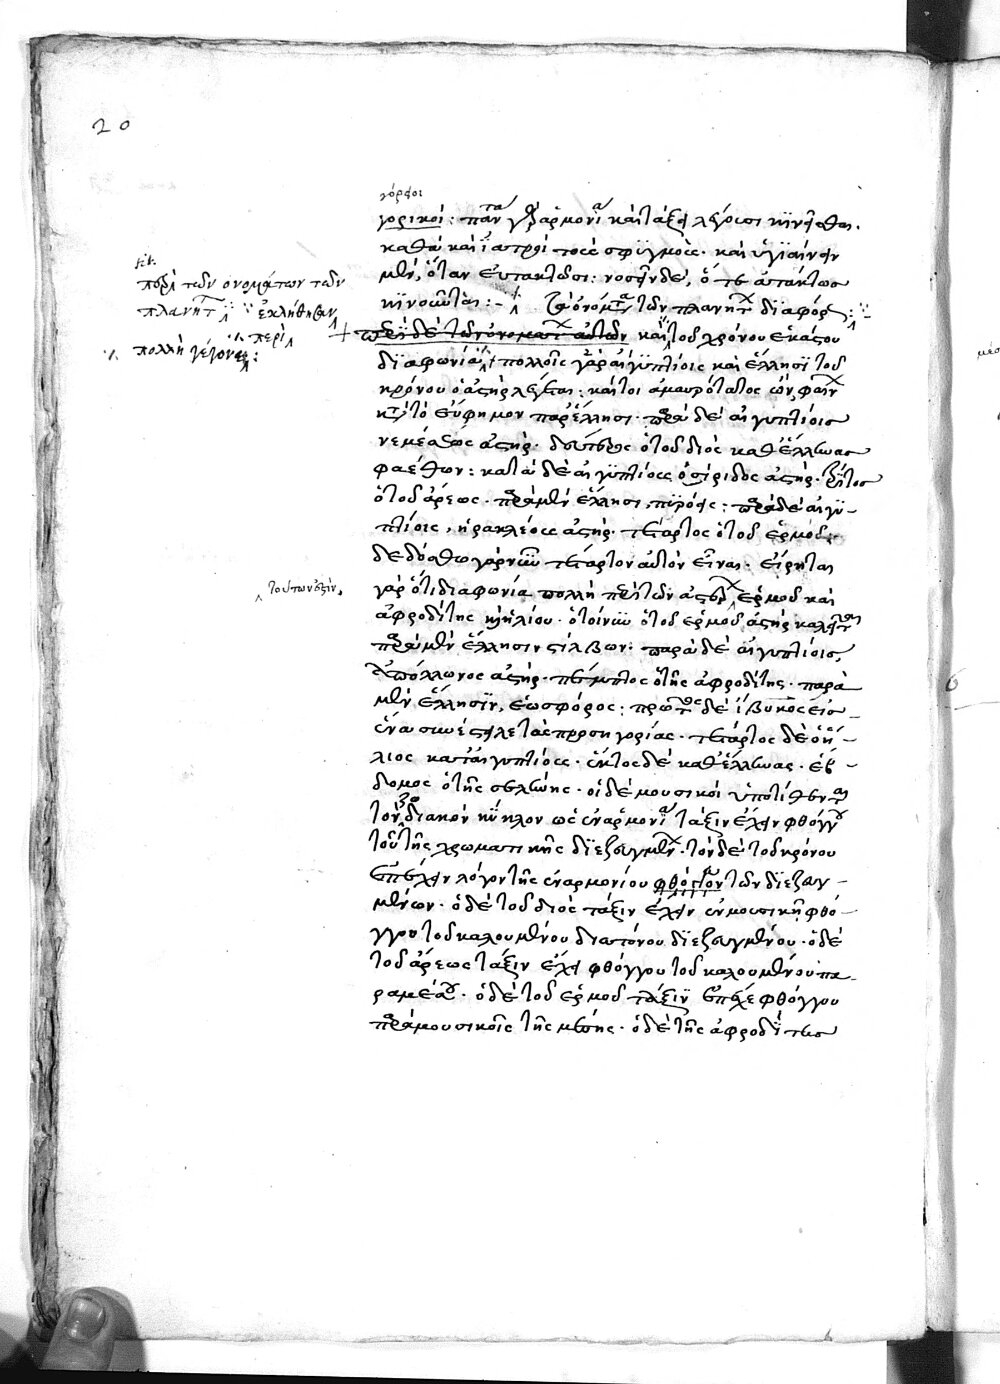 20
γόρειοι
γορικοί : πάντα γὰρ ἁρμονία καὶ τάξει λέγουσι κινεῖσθαι.
καθὰ καὶ ἰατροὶ τοὺς σφυγμούς. καὶ ὑγιαίνειν
μὲν, ὅταν εὐτακτῶσι : νοσεῖν δὲ, ὅτε ἀτάκτως
κινοῦνται : τὰ ὀνόματα τῶν πλανητῶν διαφόρως
περὶ δὲ τῶν ὀνομάτων αὐτῶν καὶ τοῦ χρόνου ἑκάστου
διαφωνία πολλοῖς γὰρ αἰγυπτίοις καὶ ἕλλησι τοῦ
κρόνου ὁ ἀστὴρ λέγεται : καίτοι ἀμαυρότατος ὢν, φαίνων
κατὰ τὸ εὔφημον παρ' ἕλλησι. παρὰ δὲ αἰγυπτίοις
νεμέσεως ἀστήρ. δεύτερος ὁ τοῦ διὸς καθ' ἕλληνας
φαέθων : κατὰ δὲ αἰγυπτίους ὀσίριδος ἀστήρ. τρίτος
ὁ τοῦ ἄρεως. παρὰ μὲν ἕλλησι, πυρόεις : παρὰ δὲ αἰγυ-
πτίοις, ἡρακλέους ἀστήρ. τέταρτος ὁ τοῦ ἑρμοῦ.
δεδόσθω γὰρ νῦν τέταρτον αὐτὸν εἶναι. εἴρηται
γὰρ ὅτι διαφωνία πολλὴ περὶ τῶν ἀστέρων ἑρμοῦ καὶ
ἀφροδίτης καὶ ἡλίου. ὁ τοίνυν ὁ τοῦ ἑρμοῦ ἀστὴρ καλεῖται
παρὰ μὲν ἕλλησιν στίλβων : παρὰ δὲ αἰγυπτίοις,
ἀπόλλωνος ἀστήρ. πέμπτος ὁ τῆς ἀφροδίτης. παρὰ
μὲν ἕλλησιν, ἑωσφόρος : πρῶτος δὲ ἴβυκος εἰς
ἓν συνέστειλε τὰς προσηγορίας. τέταρτος δὲ ὁ ἥ-
λιος κατ' αἰγυπτίους. ἕκτος δὲ καθ' ἕλληνας. ἕβ-
δομος ὁ τῆς σελήνης. οἱ δὲ μουσικοὶ ὑποτίθενται
τὸν ζωδιακὸν κύκλον ὡς ἐναρμονία τάξιν ἔχειν φθόγγου
τοῦ τῆς χρωματικῆς διεζευγμένων. τὸν δὲ τοῦ κρόνου
ἐπέχειν λόγον τῆς ἐναρμονίου φθόγγον τῶν διεζευγ-
μένων. ὁ δὲ τοῦ διὸς τάξιν ἔχειν ἐν μουσικῇ φθό-
γγου τοῦ καλουμένου διατόνου διεζευγμένου. ὁ δὲ
τοῦ ἄρεως τάξιν ἔχει φθόγγου τοῦ καλουμένου πα-
ραμέσου. ὁ δὲ τοῦ ἑρμοῦ τάξιν ἐπεῖχε φθόγγου
παρὰ μουσικοῖς τῆς μέσης. ὁ δὲ τῆς ἀφροδίτης
περὶ τῶν ὀνομάτων τῶν
πλανητῶν ἐκλήθησαν
περὶ
πολλὴ γέγονε :
τούτων ἐστίν,